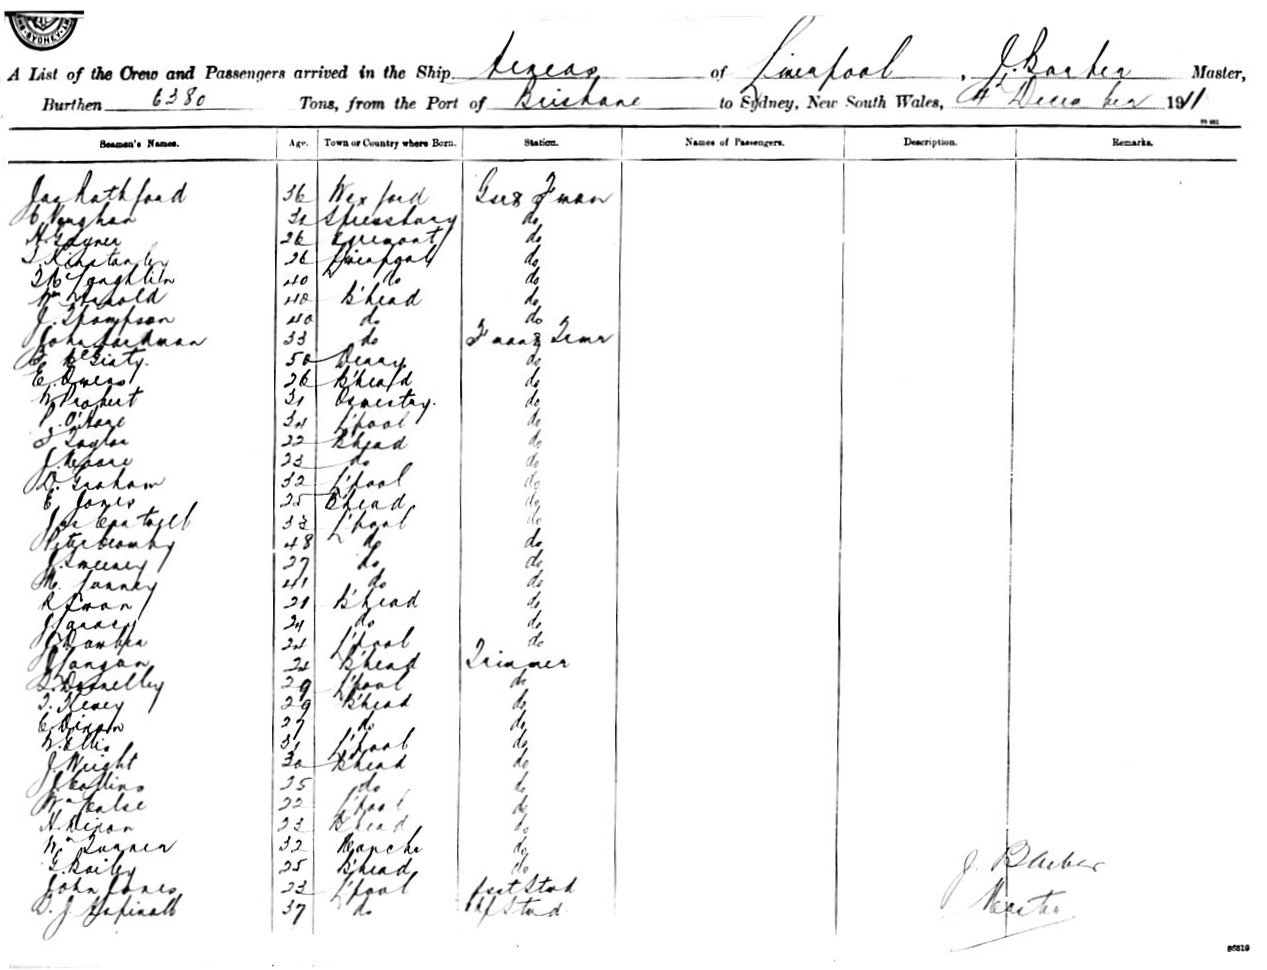 SYDNEY
A List of the Crew and Passengers arrived in the Ship Aeneas of Liverpool, J. Barber Master,
Burthen 6380 Tons, from the Port of Brisbane to Sydney, New South Wales, 4th December 1911
Seamen's Names. Age. Town or Country where Born. Station. Names of Passengers. Description. Remarks.
Jas Rathford 36 Wexford Gsr & Fman
C Vaughan 31 Shrewsbury do
H Gayner 26 Egremont do
26 Liverpool do
McLoughlin 40 do do
Wm Arnold 40 B'head do
J. Thompson 40 do do
John 33 do Fman & Trmr
McGinty 50 Derry do
E. Owens 26 B'head do
W Probert 31 Oswestry. do
P. O'Hare 34 L'pool do
T Taylor 22 B'head do
J. Moore 23 do do
D. Graham 32 L'pool do
E Jones 25 B'head do
Jas 33 L'pool do
Peter 48 do do
J. Sweeney 27 do do
M. 41 do do
R Swan 21 B'head do
J 24 do do
J 24 L'pool do
J Langan 21 B'head Trimmer
Donnelly 29 L'pool do
T. 29 B'head do
C Dixon 27 do do
W. Ellis 31 L'pool do
J Wright 30 B'head do
J Collins 25 do do
Wm 22 L'pool do
H. Dixon 23 B'head do
Wm 32 Manchr do
G. Bailey 25 B'head do
John Jones 23 L'pool Asst Stwd
D. J. Aspinall 37 do Chf Stwd
J. Barber
Master
86519